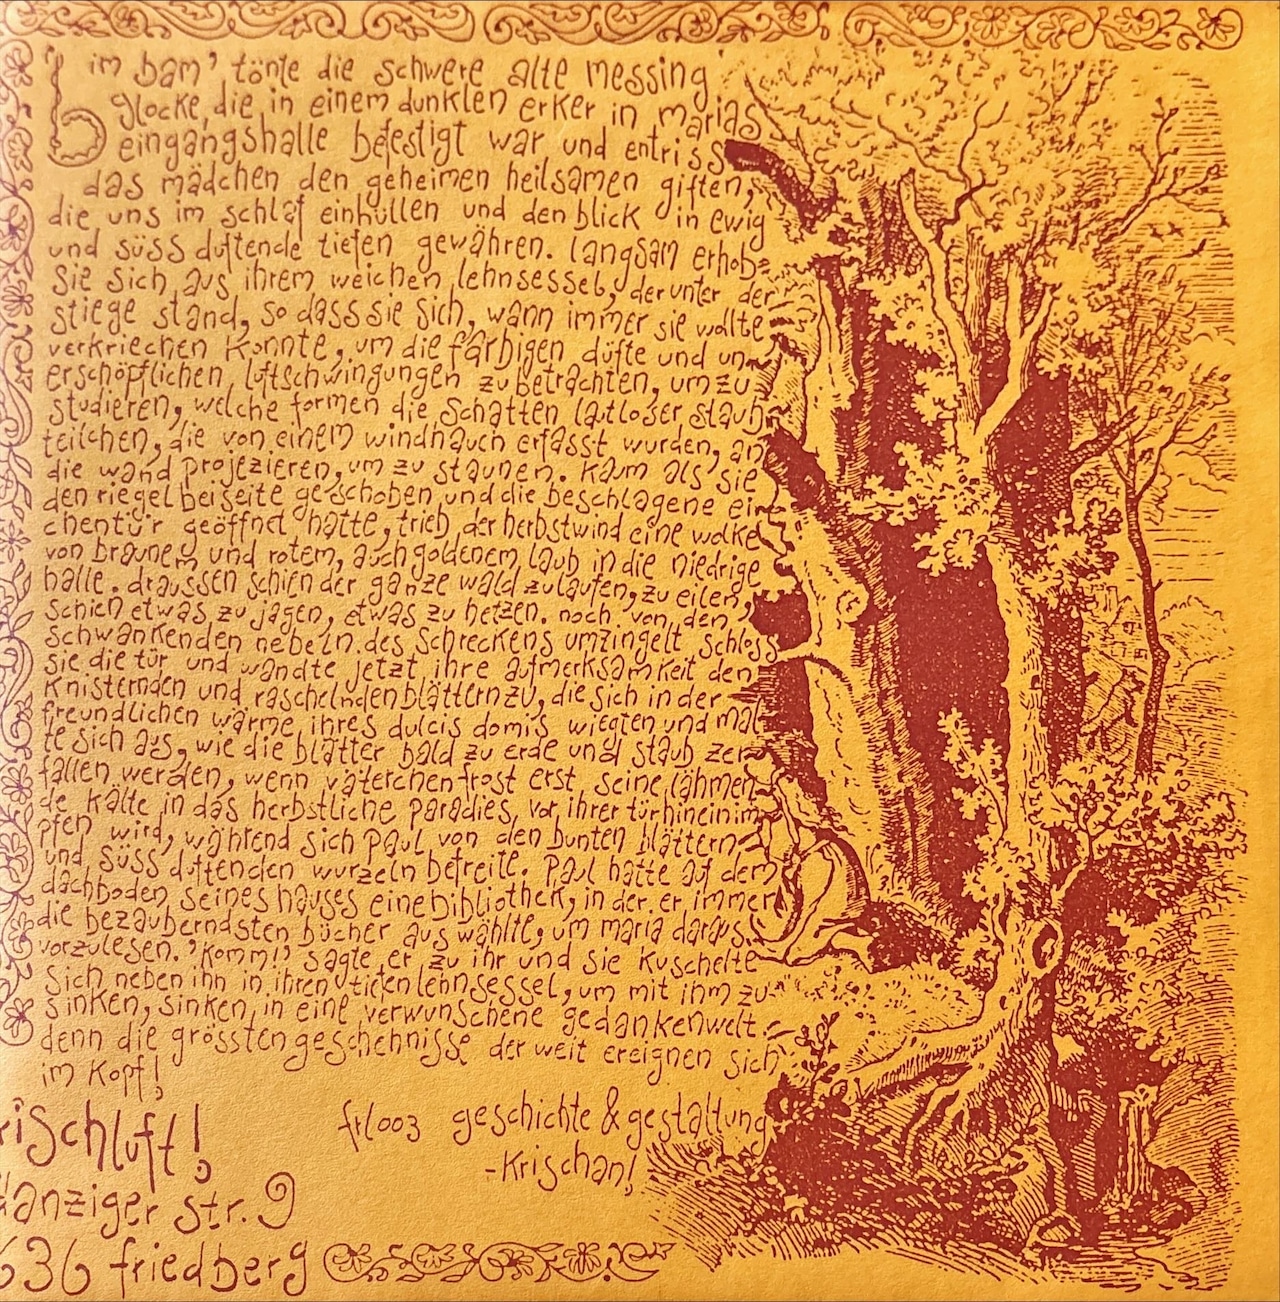 bim bam' tönte die schwere alte messing
glocke, die in einem dunklen erker in marias
eingangshalle befestigt war und entriss
das mädchen den geheimen heilsamen giften,
die uns im schlaf einhüllen und den blick in ewig
und süss duftende tiefen gewähren. langsam erhob=
sie sich aus ihrem weichen lehnsessel, der unter der
stiege stand, so dass sie sich, wann immer sie wollte
verkriechen konnte, um die farbigen düfte und un-
erschöpflichen luftschwingungen zu betrachten, um zu
studieren, welche formen die schatten lautloser staub
teilchen, die von einem windhauch erfasst wurden, an
die wand projezieren, um zu staunen. kaum als sie
den riegel beiseite geschoben und die beschlagene ei-
chentür geöffnet hatte, trieb der herbstwind eine wolke
von braunem und rotem, auch goldenem laub in die niedrige
halle. draussen schien der ganze wald zu laufen, zu eilen,
schien etwas zu jagen, etwas zu hetzen. noch von den
schwankenden nebeln des schreckens umzingelt schloss
sie die tür und wandte jetzt ihre aufmerksamkeit den
knisternden und raschelnden blättern zu, die sich in der
freundlichen wärme ihres dulcis domis wiegten und mal
te sich aus, wie die blätter bald zu erde und staub zer-
fallen werden, wenn väterchen frost erst seine lähmen
de kälte in das herbstliche paradies vor ihrer tür hineinim
pfen wird, während sich paul von den bunten blättern
und süss duftenden wurzeln befreite. paul hatte auf dem
dachboden seines hauses eine bibliothek, in der er immer
die bezauberndsten bücher aus wählte, um maria daraus
vorzulesen. 'komm!' sagte er zu ihr und sie kuschelte
sich neben ihn in ihren tiefen lehnsessel, um mit ihm zu
sinken, sinken in eine verwunschene gedankenwelt.
denn die grössten geschehnisse der welt ereignen sich
im kopf!
rischluft!
frl003 geschichte & gestaltung
-krischan!
danziger str. 9
636 friedberg